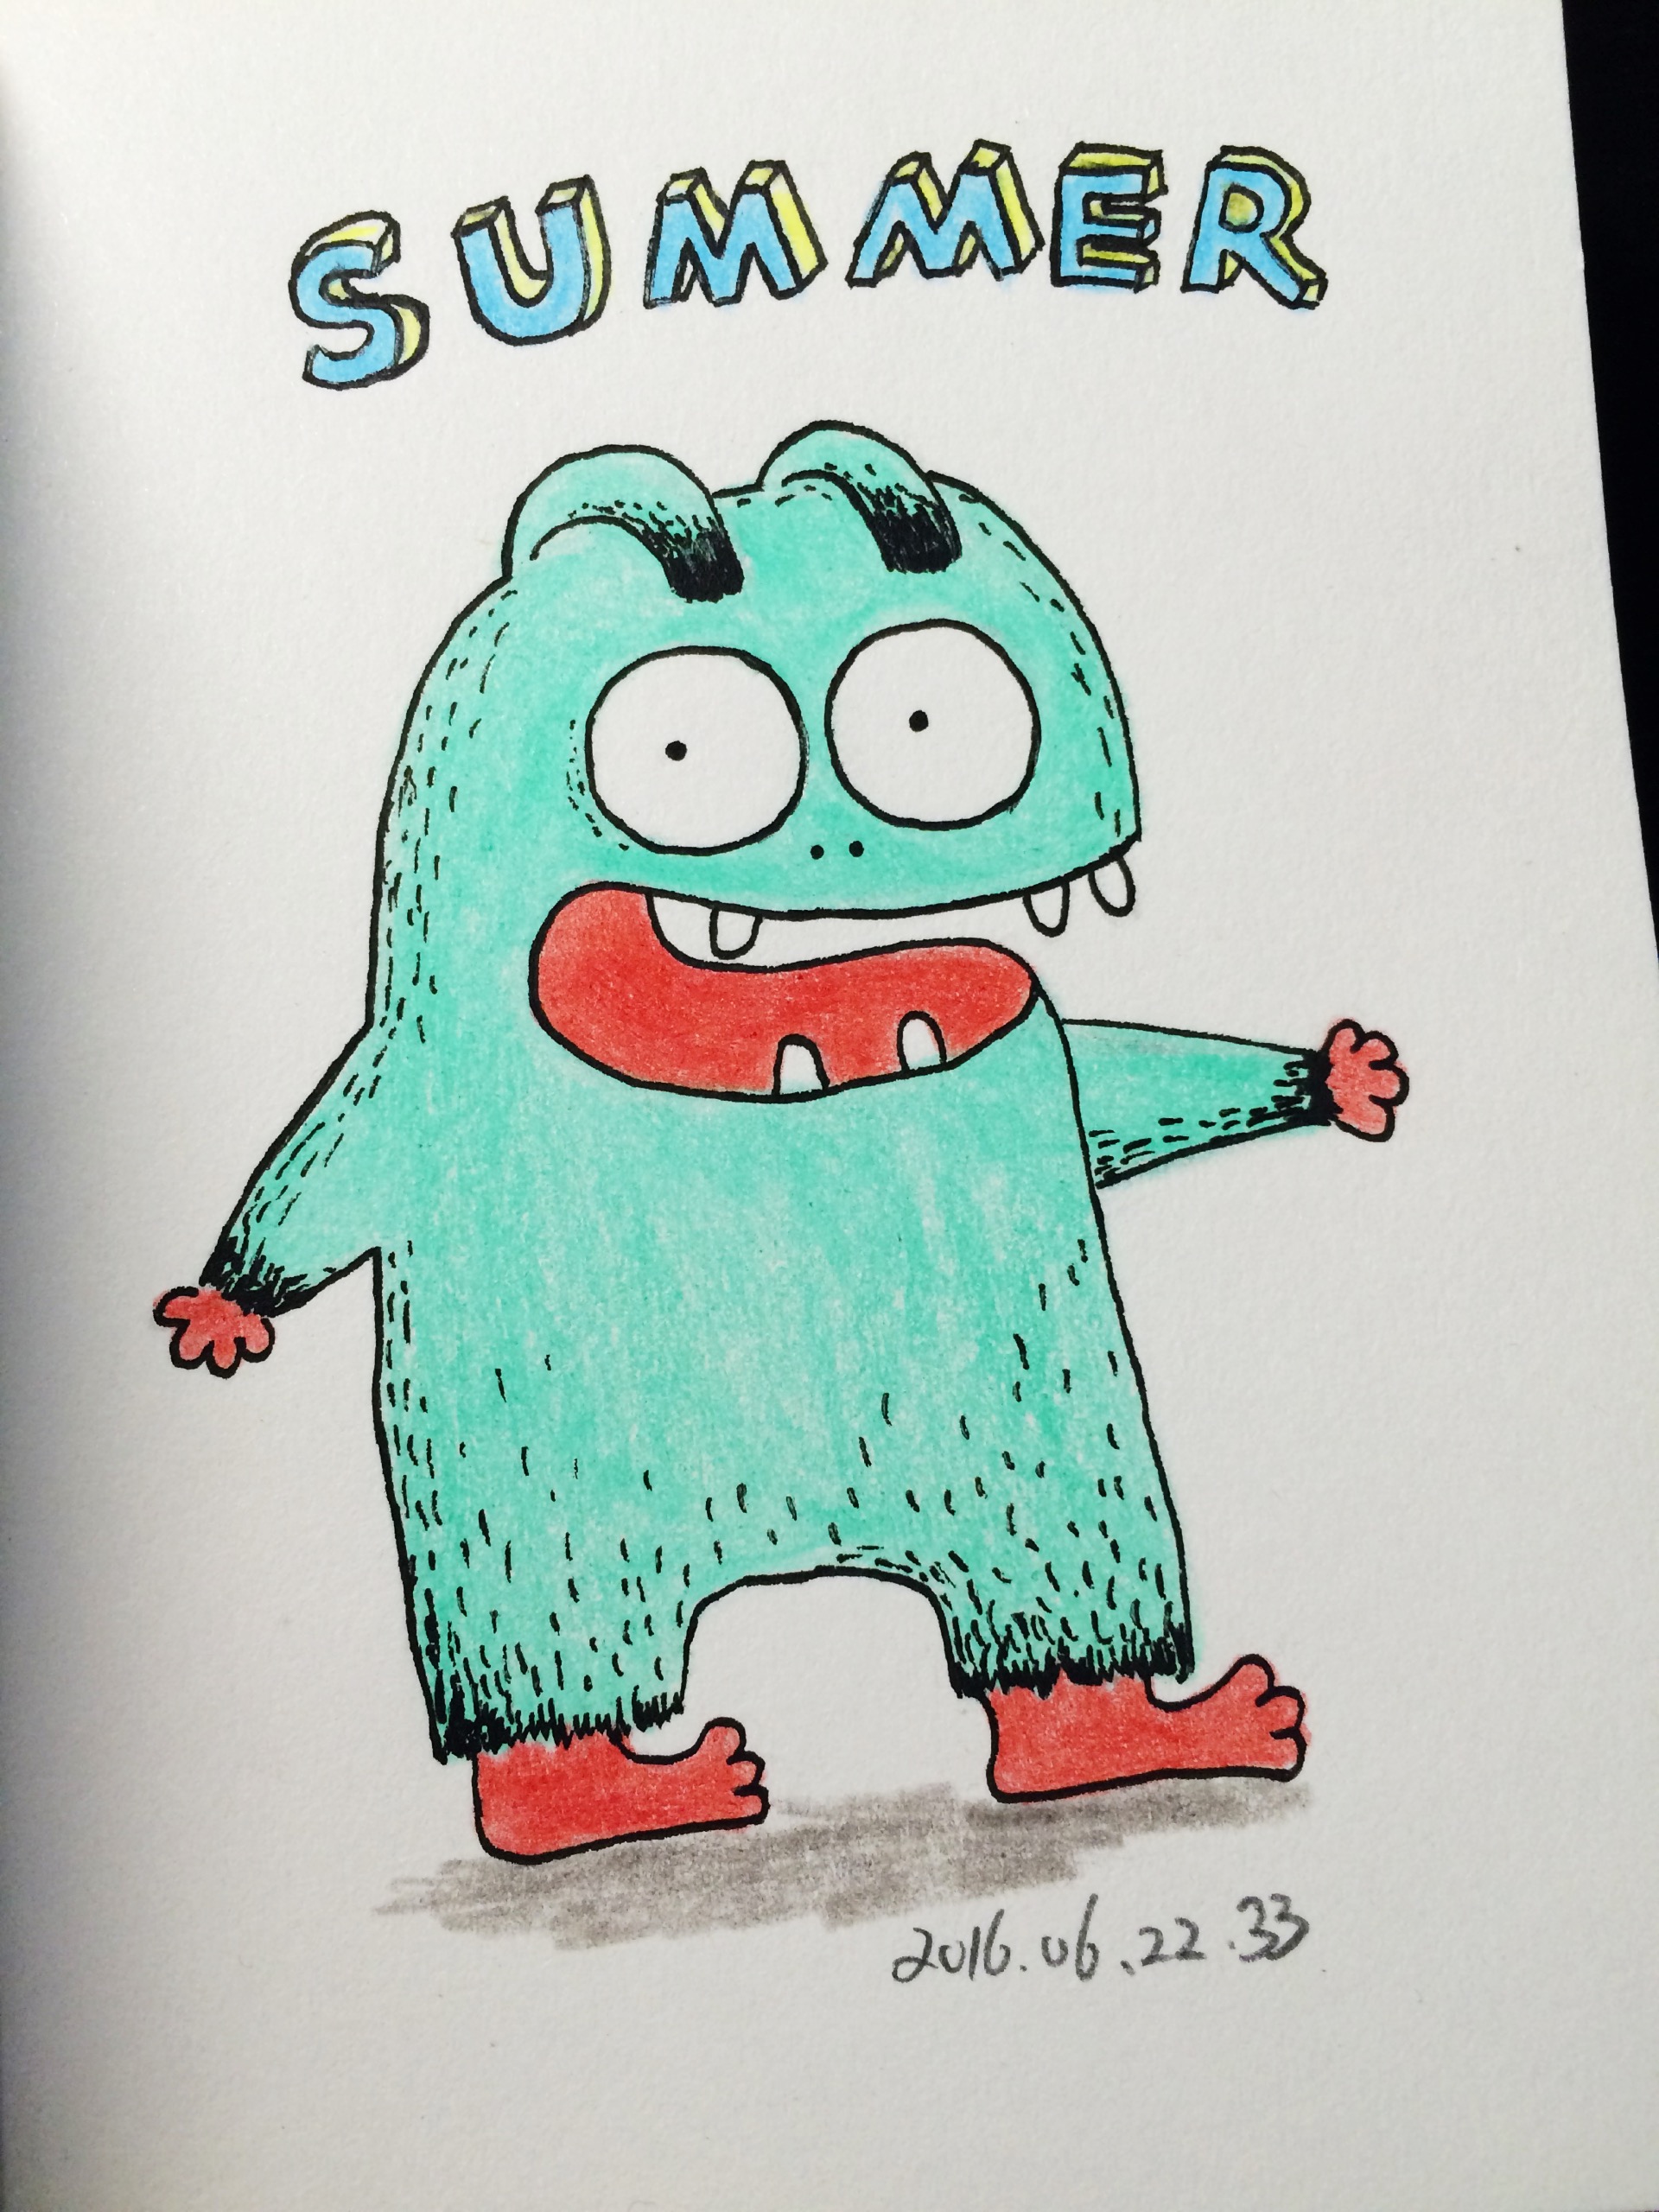 SUMMER
2016.06.22.33